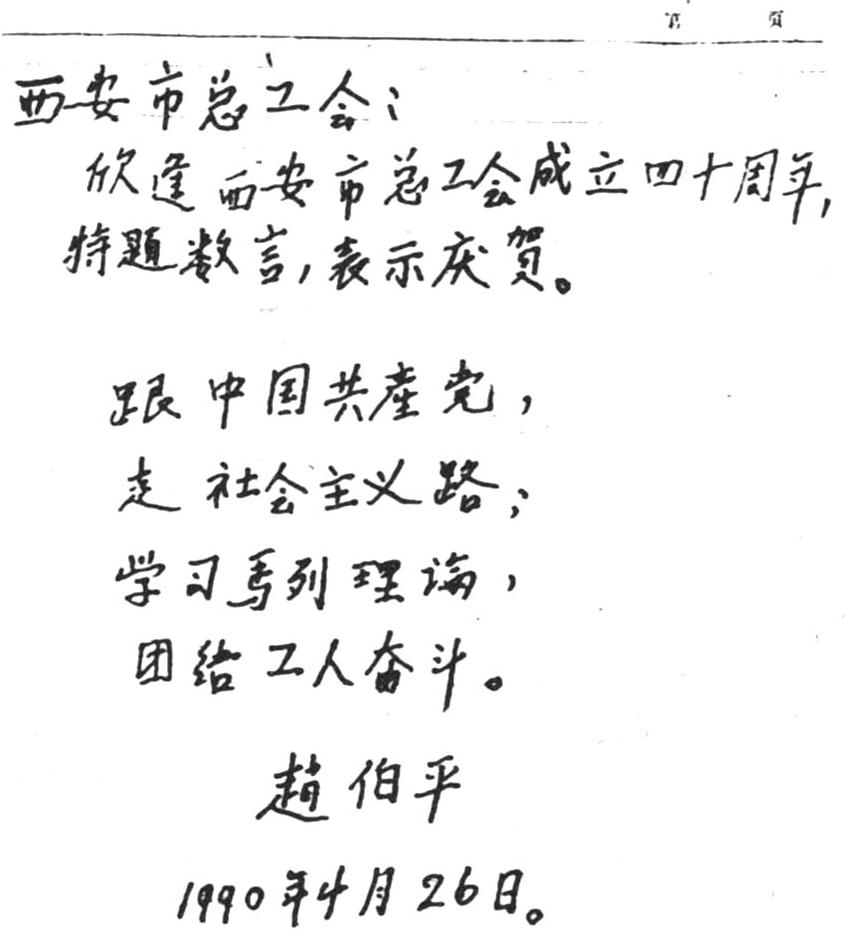 第 页
西安市总工会：
欣逢西安市总工会成立四十周年，
特题数言，表示庆贺。
跟中国共產党，
走社会主义路；
学习马列理论，
团结工人奋斗。
趙伯平
1990年4月26日。